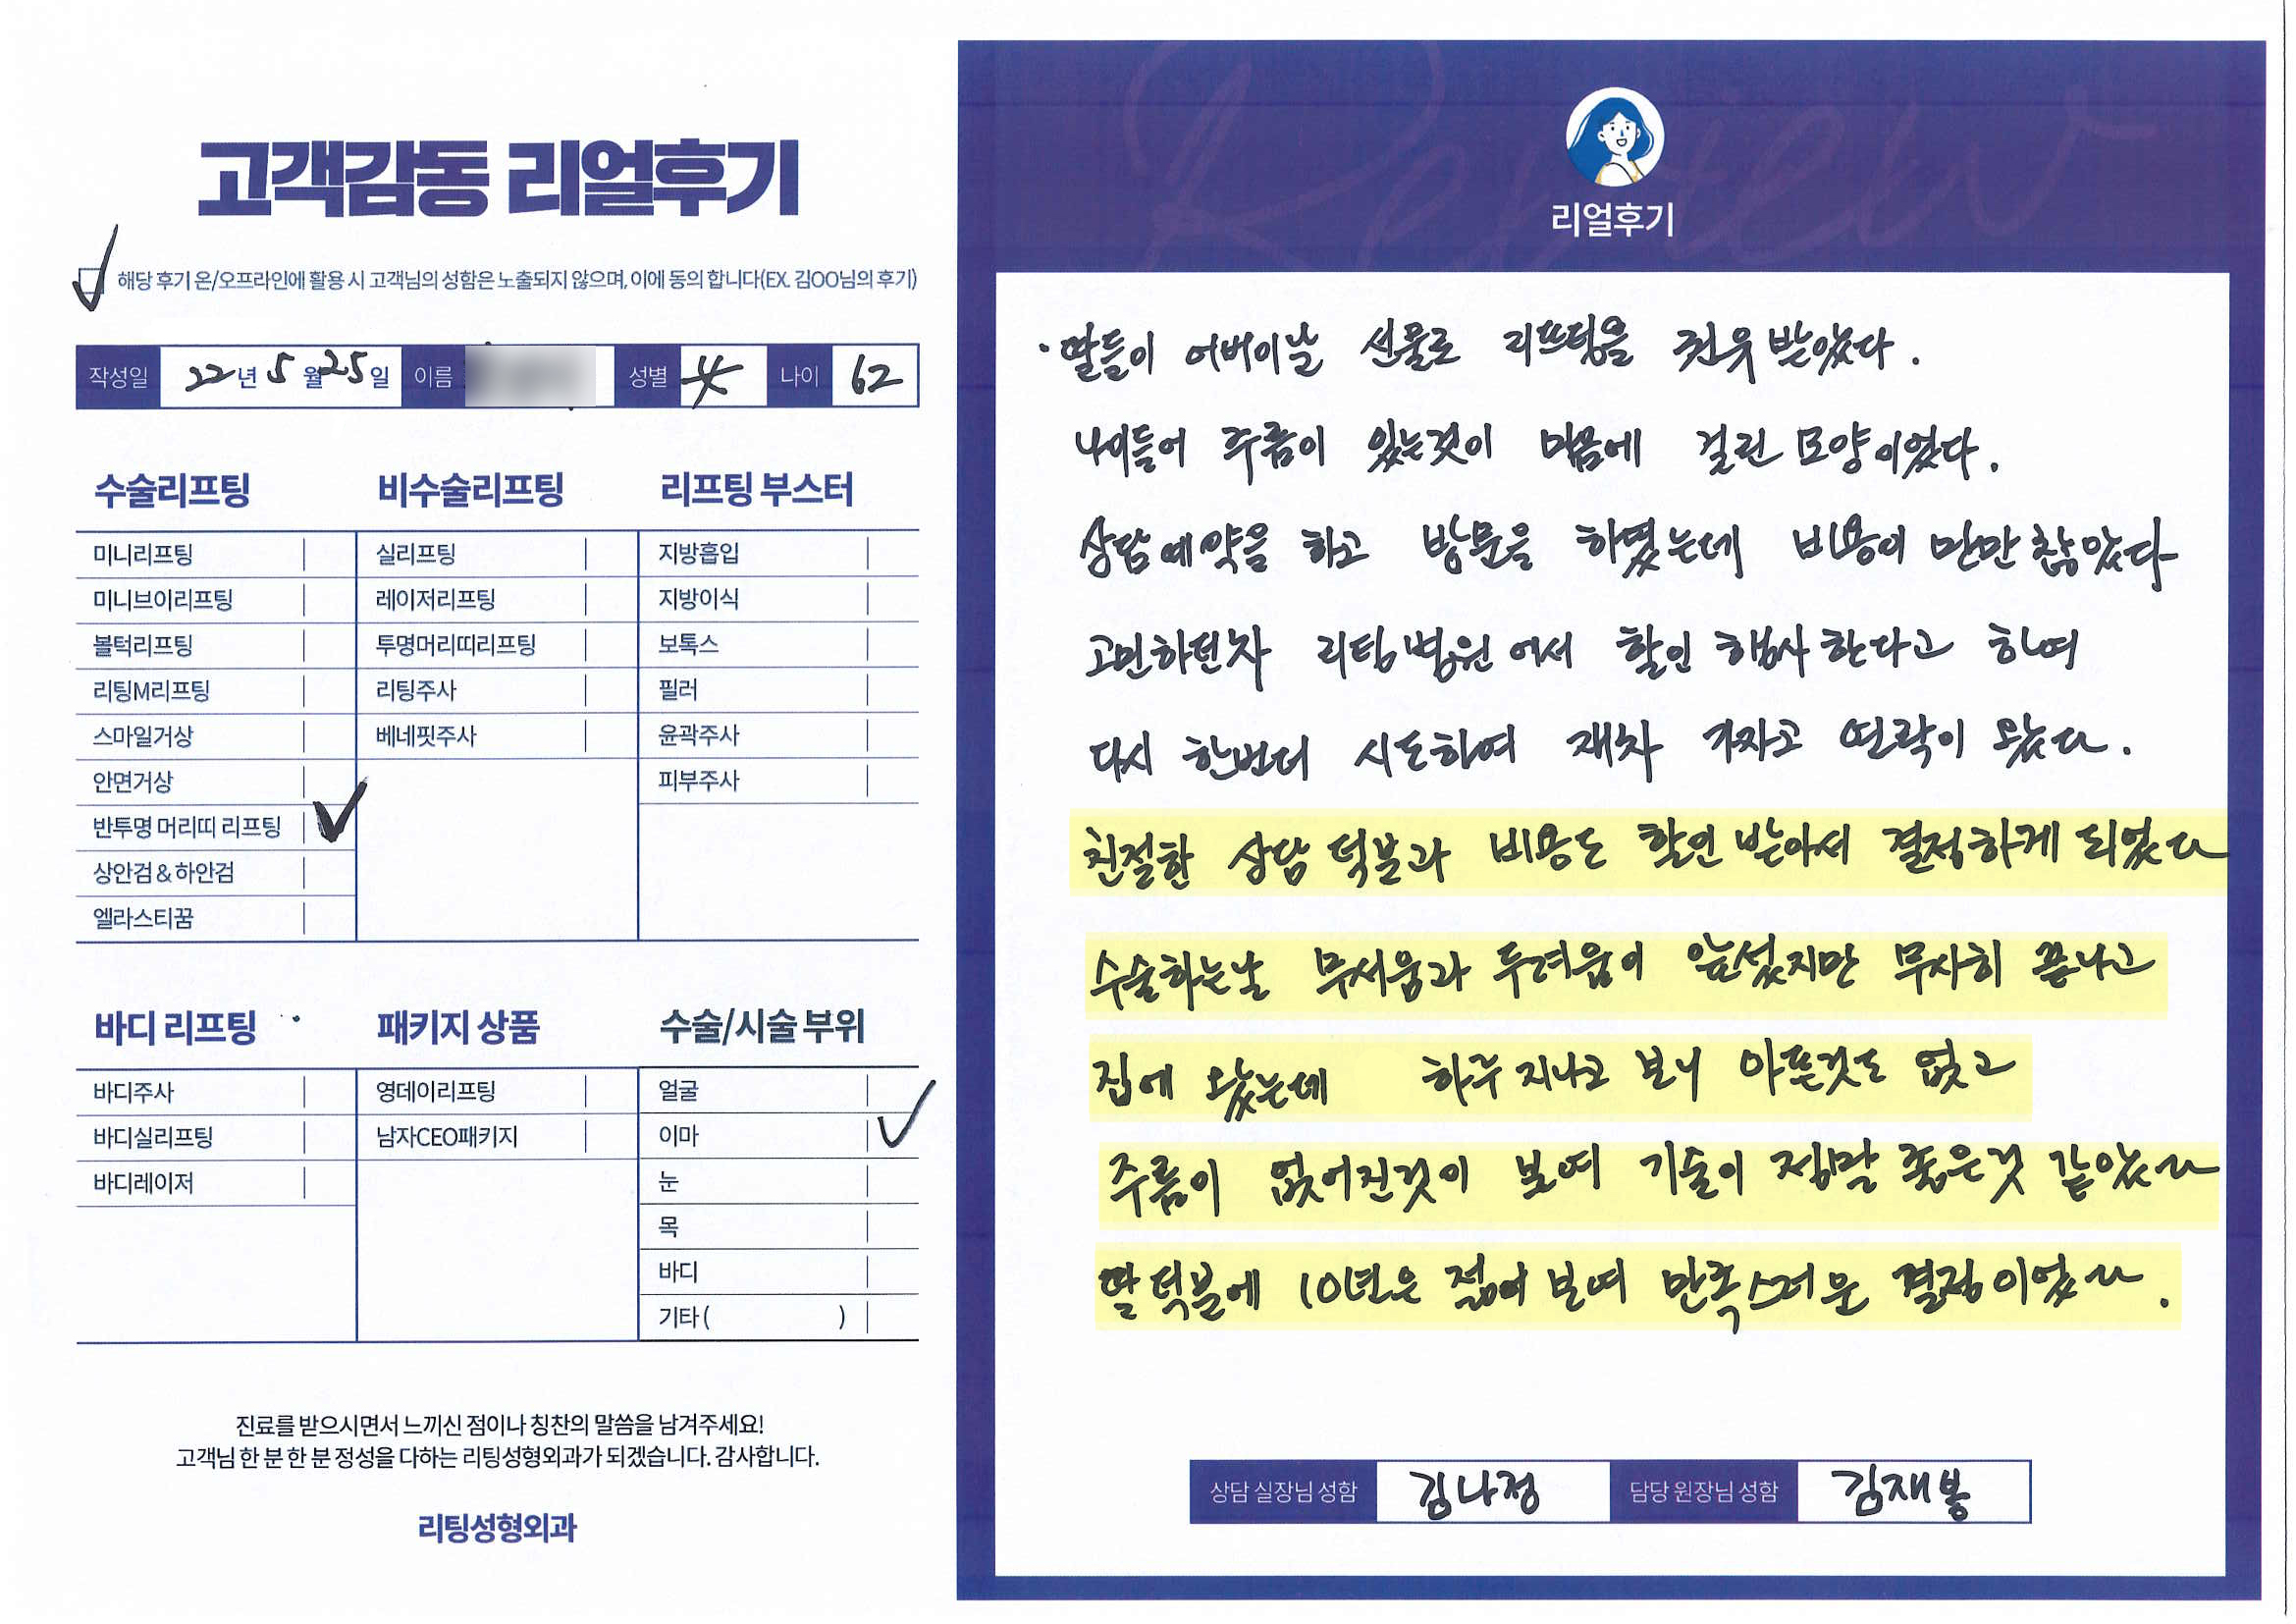 고객감동 리얼후기
해당 후기 온/오프라인에 활용 시 고객님의 성함은 노출되지 않으며, 이에 동의 합니다(EX. 김OO님의 후기)
작성일 22년 5월 25일 이름 성별 女 나이 62
수술리프팅
미니리프팅
미니브이리프팅
볼턱리프팅
리팅M리프팅
스마일거상
안면거상
반투명 머리띠 리프팅
상안검&하안검
엘라스티꿈
비수술리프팅
실리프팅
레이저리프팅
투명머리띠리프팅
리팅주사
베네핏주사
리프팅 부스터
지방흡입
지방이식
보톡스
필러
윤곽주사
피부주사
바디 리프팅
바디주사
바디실리프팅
바디레이저
패키지 상품
영데이리프팅
남자CEO패키지
수술/시술 부위
얼굴
이마
눈
목
바디
기타( )
진료를 받으시면서 느끼신 점이나 칭찬의 말씀을 남겨주세요!
고객님 한 분 한 분 정성을 다하는 리팅성형외과가 되겠습니다. 감사합니다.
리팅성형외과
Review
리얼후기
· 딸들이 어버이날 선물로 리프팅을 권유 받았다.
나이들어 주름이 있는것이 마음에 걸린 모양이었다.
상담예약을 하고 방문을 하였는데 비용이 만만찮았다
고민하던차 리팅병원에서 할인 행사한다고 하여
다시 한번더 시도하여 재차 가자고 연락이 왔다.
친절한 상담 덕분과 비용도 할인 받아서 결정하게 되었다
수술하는날 무서움과 두려움이 앞섰지만 무사히 끝나고
집에 왔는데 하루 지나고 보니 아픈것도 없고
주름이 없어진것이 보여 기술이 정말 좋은것 같았다
딸 덕분에 10년은 젊어 보여 만족스러운 결정이었다.
상담 실장님 성함 김나정 담당 원장님 성함 김재봉